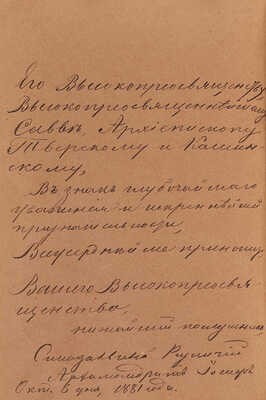 Его Высокопреосвященству
Высокопреосвященнѣйшему
Саввѣ, Архіепископу
Тверскому и Кашин-
скому,
Въ знакъ глубочайшаго
уваженія и искреннѣйшей
признательности,
Вашего Высокопреосвя-
щенства,
нижайшій послушникъ,
Синодальной Ризничій
Архимандритъ Іосифъ
Окт. 6 дня, 1881 года.